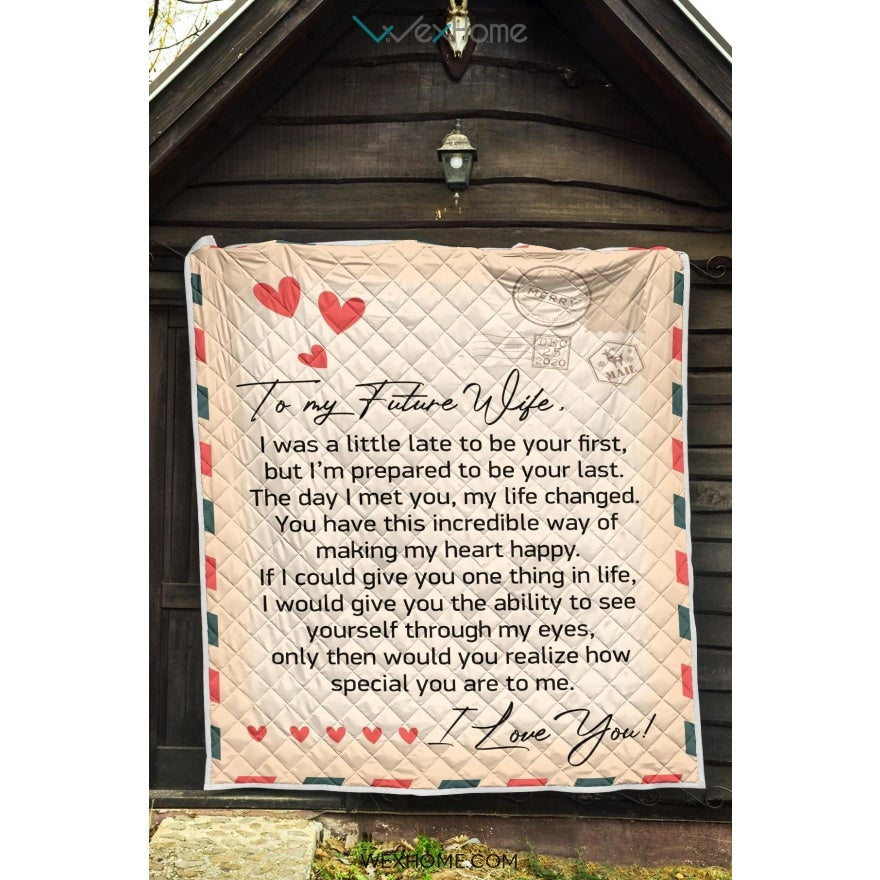 WexHome
MERRY
DEC
25
2020
MAIL
To my Future Wife,
I was a little late to be your first,
but I'm prepared to be your last.
The day I met you, my life changed.
You have this incredible way of
making my heart happy.
If I could give you one thing in life,
I would give you the ability to see
yourself through my eyes,
only then would you realize how
special you are to me.
I Love You!
WEXHOME.COM